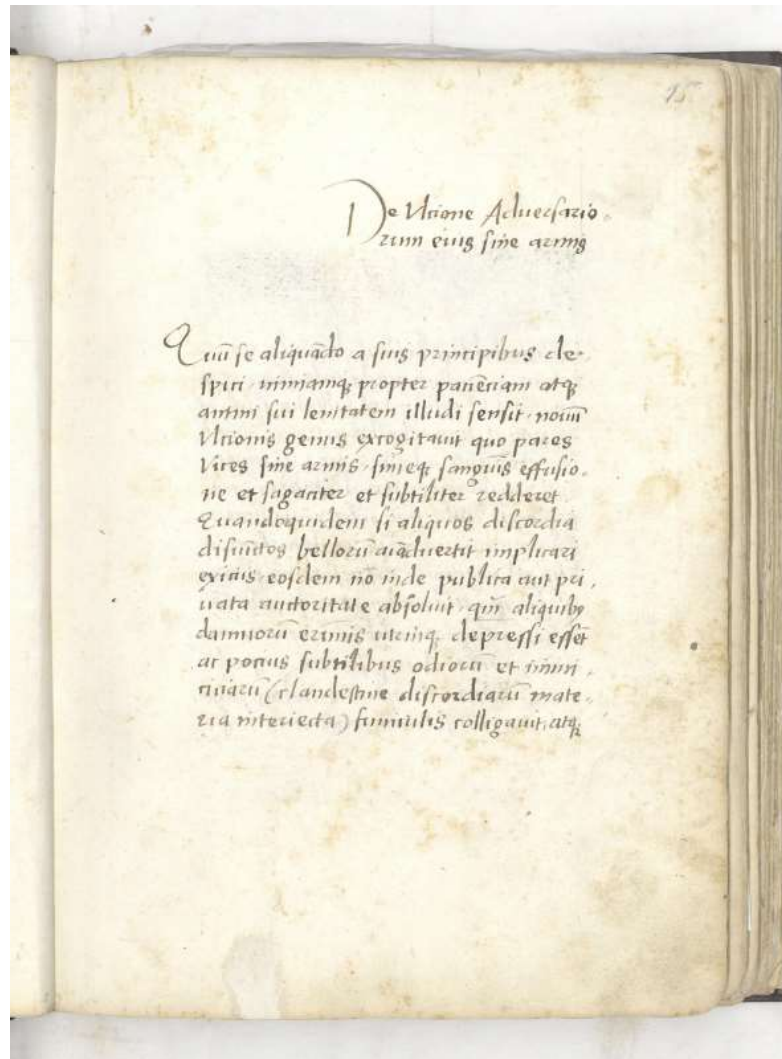 15
De Vltione Adversario-
rum eius sine armis
Quū se aliquādo a suis principibus de-
spici nimiamq; propter pacienciam atq;
animi sui lenitatem illudi sensit nouū
Vltionis genus excogitauit quo pares
Vices sine armis, sineq; sanguīs effusio-
ne et sagaciter et subtiliter redderet
Quandoquidem si aliquos discordia
disiūctos bellorū aīaduertit implicari
exiciis eosdem nō inde publica aut pri-
uata auctoritate absoluit, qīn aliquibꝫ
damnorū erūnis utrinq; depressi essēt
ac pocius subtilibus odiorū et inimi-
ciciarū (clandestine discordiarū mate-
ria interiecta) funiculis colligauit, atq;